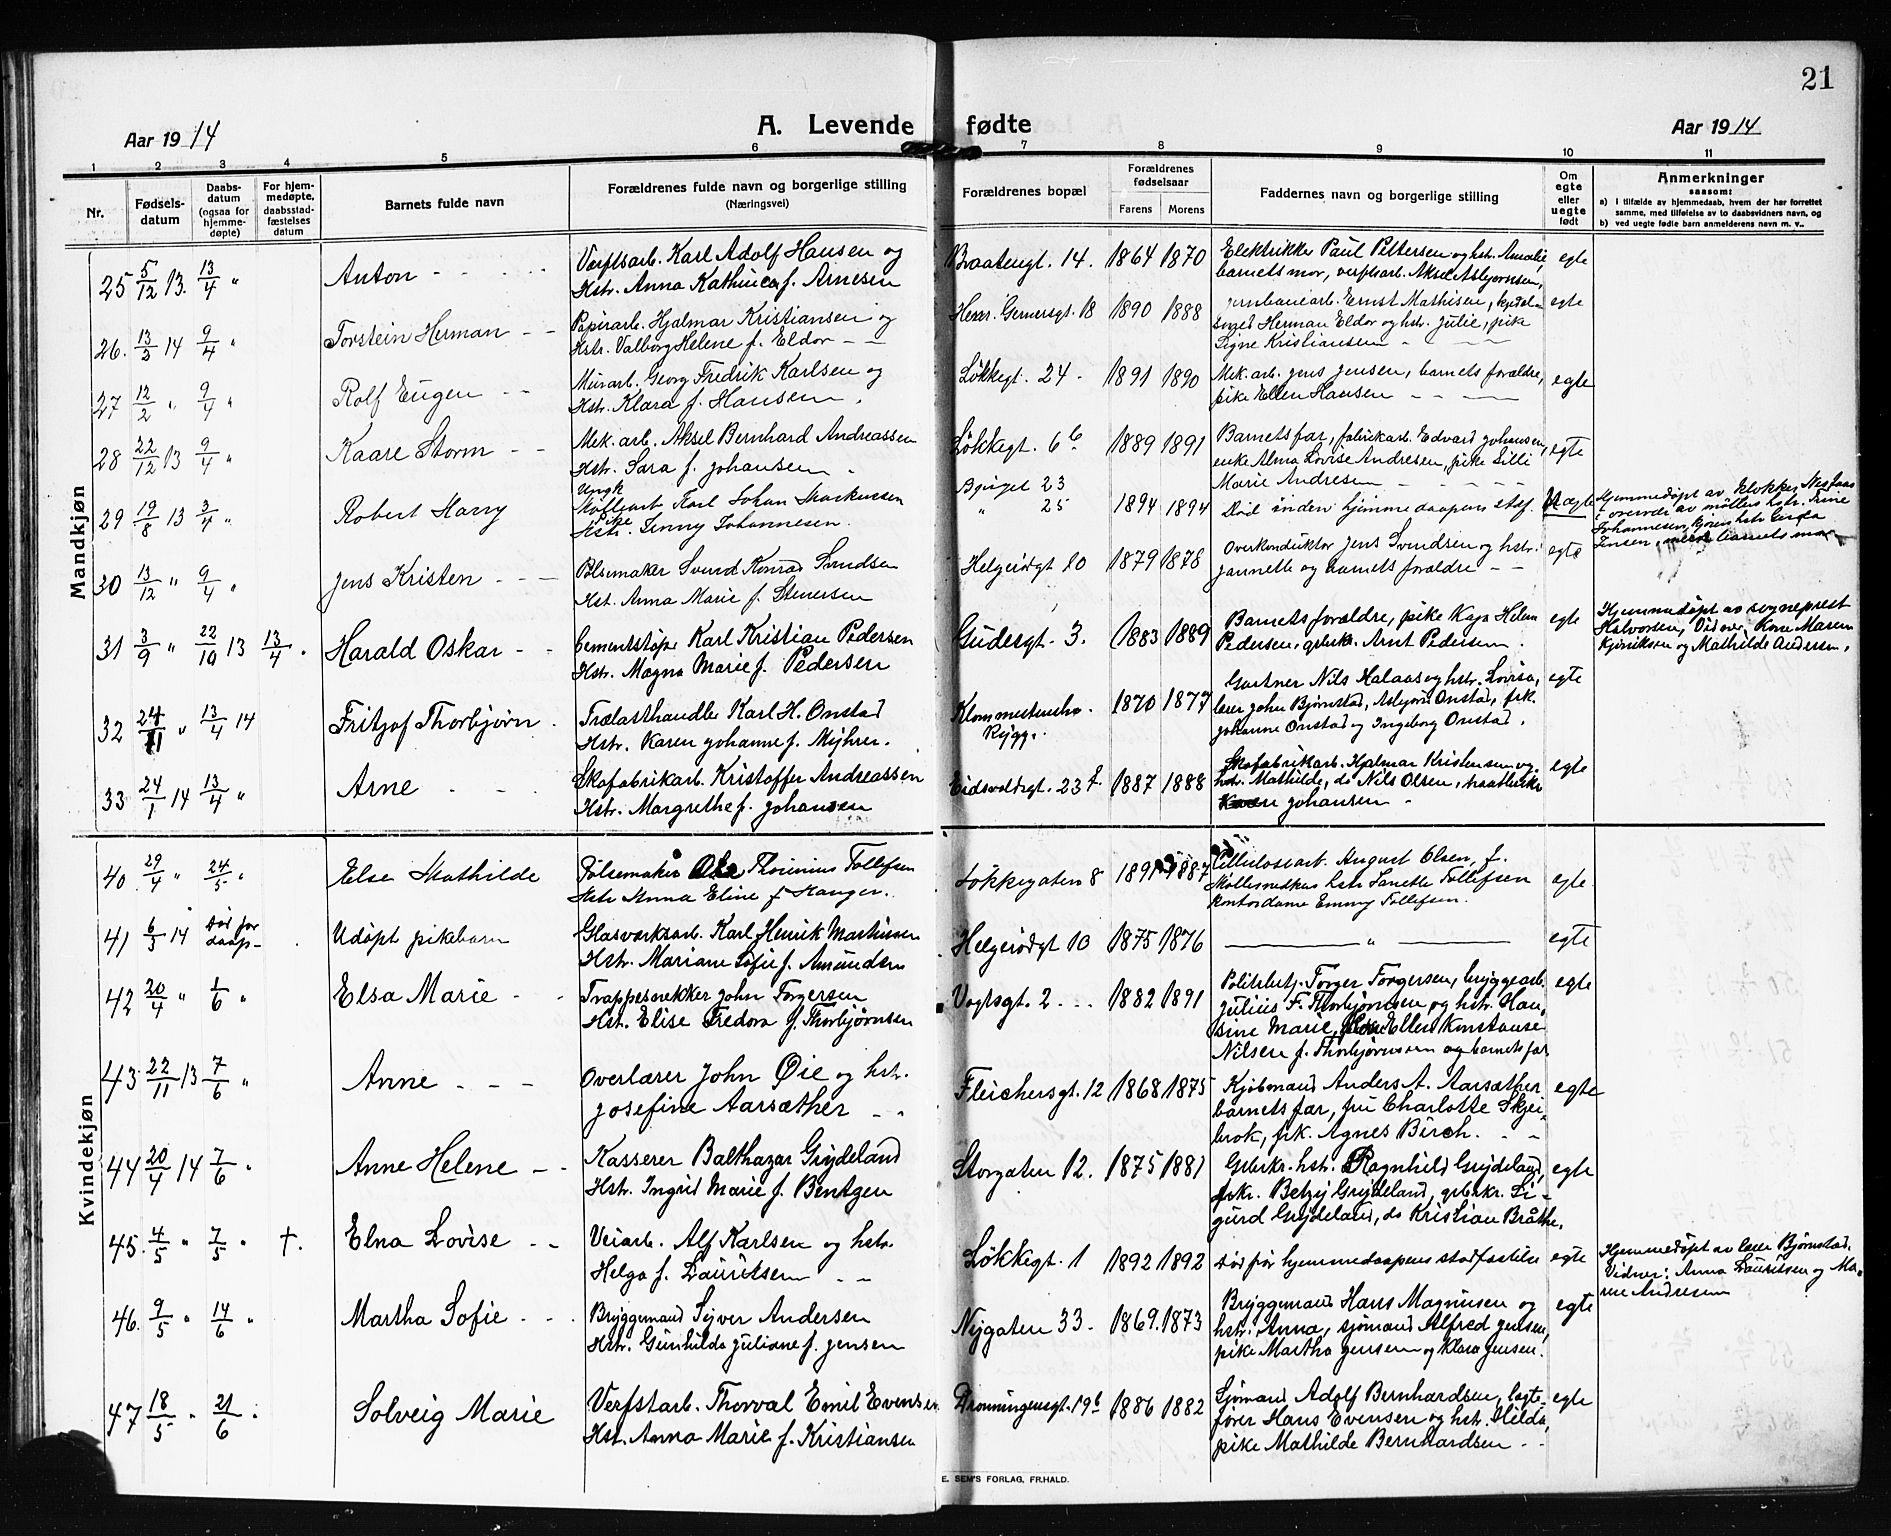 21
Aar 1914
A. Levende fødte
Aar 1914
1 2 3 4 5 6 7 8 9 10 11
Nr.
Fødsels-
datum
Daabs-
datum
(ogsaa for
hjemme-
døpte)
For hjem-
medøpte,
daabsstad-
fæstelses
datum
Barnets fulde navn
Forældrenes fulde navn og borgerlige stilling
(Næringsvei)
Forældrenes bopæl
Forældrenes
fødselsaar
Farens Morens
Faddernes navn og borgerlige stilling
Om
egte
eller
uegte
født
Anmerkninger
saasom:
a) I tilfælde av hjemmedaab, hvem der har forrettet
samme, med tilføielse av to daabsvidners navn, og
b) ved uegte fødte barn anmelderens navn m. v..
Mandkjøn
25 5/12 13. 13/4 "
Anton
Verftsarb. Karl Adolf Hansen og
Hstr. Anna Kathinca f. Arnesen
Braatengt. 14. 1864 1870
Elektrikker Paul Pettersen og hst. Amalie,
barnets mor, verftarb. Aksel Asbjørnsen,
egte
26. 13/2 14 9/4 "
Torstein Herman
Papirarb. Hjalmar Kristiansen og
Hstr. Valborg Helene f. Eldor
Henr. Gernersgt. 18 1890 1888
jernbanearb. Ernst Mathisen,
Herman Eldor og hstr. Julie, pike
Signe Kristiansen
egte
27 12/2 " 9/4 "
Rolf Eugen
Murarb. Georg Fredrik Karlsen og
Hstr. Klara f. Hansen
Løkkegt. 24 1891 1890
Mek. arb. Jens Jensen, barnets forældre,
pike Ellen Hansen
egte
28 22/12 13 9/4 "
Kaare Storm
Mek. arb. Aksel Bernhard Andreassen
Hstr. Sara f. Johansen
Løkkegt. 6b 1889 1891
Barnets far, fabrikarb. Edvard Johansen,
enke Alma Lovise Andresen, pike Lilli
Marie Andresen
egte
29 19/8 13 3/4 "
Robert Harry
Ungk
Karl Johan Markussen
Pike
Jenny Johannesen
23
" 25 1894 1894
Død inden hjemmedaapens stdf.
Uegte
Hjemmedøpt av klokker Nesfaas
i overvær av møllers hstr. Trine
Johannesen,
Jensen, barnets mor
30 13/12 " 9/4 "
Jens Kristen
Pølsemaker Svend Konrad Svendsen
Hst. Anna Marie f. Stenersen
Helgerødgt 10 1879 1878
Overkonduktør Jens Svendsen og hstr.
Jannette og barnets forældre
egte
31 3/9 " 22/10 13 13/4
Harald Oskar
Cementstøper Karl Kristian Pedersen
Hstr. Magna Marie f. Pedersen
Gudesgt. 3. 1883 1889
Barnets forældre, pike Kaja Helene
Pedersen, grbrk. Arnt Pedersen
egte
Hjemmedøpt av sogneprest
Halvorsen, Vidner, Kone Maren
og Mathilde Andersen,
32 24/11 " 13/4 14
Fritzjof Thorbjørn
Trælasthandler Karl H. Onstad
Hstr. Karen Johanne f. Myhrer.
Rygge. 1870 1877
Gartner Nils Halaas og hstr. Lovisa,
lærer John Bjørnstad, Asbjørn Onstad, frk.
Johanne Onstad og Ingeborg Onstad.
egte
33 24/1 14 13/4 "
Arne
Skofabrikarb. Kristoffer Andreassen
Hstr. Margrethe f. Johansen
Eidsvoldsgt. 23 f. 1887 1888
Skofabrikarb. Hjalmar Kristensen og
hstr. Mathilde, do Nils Olsen,
Johansen
egte
Kvindekjøn
40 29/4 " 24/5 "
Else Mathilde
Pølsemaker Thorinius Tollefsen
Hstr Anna Eline f Hanger.
Løkkegaten 8 1891 1887
Cellulosearb. August Olsen, f.
Møllesnedkers hstr Janette Tollefsen
Kontordame Emmy Tollefsen.
egte
41 6/3 14 død før
daap-
Udøpt pikebarn
Glasværksarb. Karl Henrik Martinsen
Hstr. Mariane Sofie f. Amundsen
Helgerødgt 10 1875 1876
"
egte
42 20/4 " 1/6 "
Elsa Marie
Trappesnekker John Torgersen
Hst. Elise Fredora f. Thorbjørnsen
Vogtsgt. 2 1882 1891
Politibetj. Torger Torgersen, bryggearb.
Julius F. Thorbjørnsen og hstr. Han-
sine Marie, Ellen Konstanse
Nilsen f. Thorbjørnsen og barnets far
egte
43 22/11 13 7/6 "
Anne
Overlærer John Øie og hstr.
Josefine Aarsæther
Fleichersgt. 12 1868 1875
Kjøbmand Anders A. Aarsæther
barnets far, fru Charlotte Skjei-
brok, frk. Agnes Birch.
egte
44 20/4 14 7/6 "
Anne Helene
Kasserer Balthazar Grydeland
Hstr. Ingrid Marie f. Bentzen
Storgaten 12. 1875 1881
Grbrkr. hstr. Ragnhild Grydeland,
frkr. Betzy Grydeland, grbrkr. Si-
gurd Grydeland, do Kristian Bråthe.
egte
45. 4/5 " 7/5 " †.
Elna Lovise
Veiarb. Alf Karlsen og hstr.
Helga f. Lauritsen
Løkkegt. 1 1892 1892
død før hjemmedaapens stadfæstelse
egte
Hjemmedøpt av lærer Bjørnstad.
Vidner: Anna Lauritsen og Ma-
rie Andresen
46. 9/5 " 14/6 "
Martha Sofie
Bryggemand Syver Andersen
Hstr. Gunhilda Juliane f. Jensen
Nygaten 33. 1869. 1873
Bryggemand Hans Magnusen og
hstr. Anna, sjømand Alfred Jensen,
pike Martha Jensen og Klara Jensen.
egte
47 18/5 " 21/6 "
Solveig Marie
Verftsarb. Thorval Emil Evensen
Hst. Anna Marie f. Kristiansen
Dronningensgt. 19b 1886 1882
Sjømand Adolf Bernhardsen, lægte-
fører Hans Evensen og hstr. Hilda,
pike Mathilde Bernhardsen
egte
E. SEM'S FORLAG, FR.HALD.